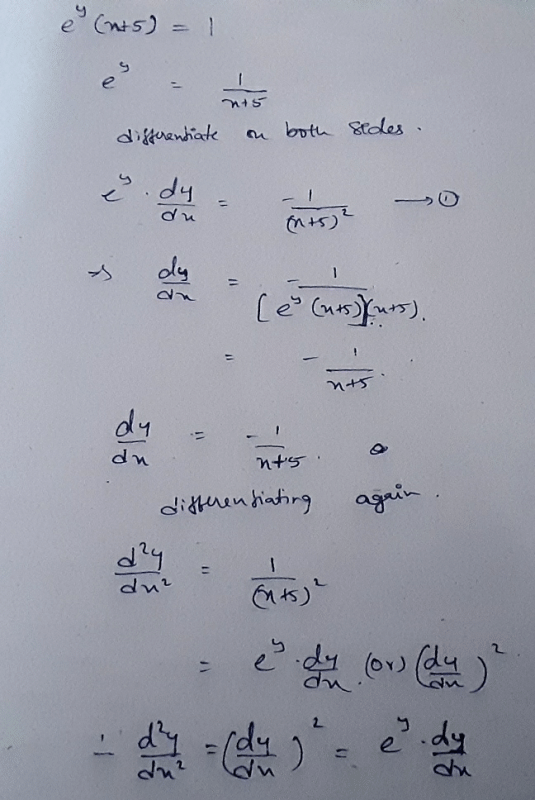 e^y (x+5) = 1
e^y = 1/(x+5)
differentiate on both sides.
e^y · dy/dx = -1/(x+5)² → ①
⇒ dy/dx = -1/([e^y (x+5)](x+5)).
= -1/(x+5).
dy/dx = -1/(x+5).
differentiating again.
d²y/dx² = 1/(x+5)²
= e^y · dy/dx (or) (dy/dx)²
∴ d²y/dx² = (dy/dx)² = e^y · dy/dx